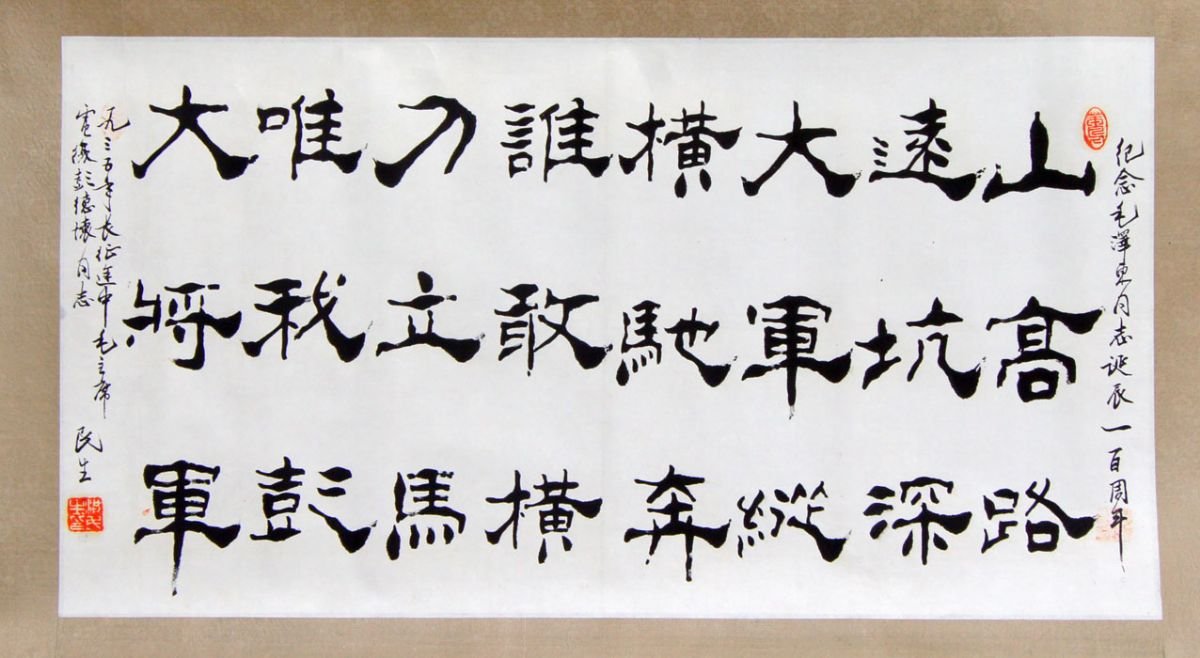 纪念毛澤東同志诞辰一百周年
山高路
遠坑深
大軍縱
橫馳奔
誰敢橫
刀立馬
唯我彭
大將軍
一九三五年长征途中毛主席
彭德懷同志
民生